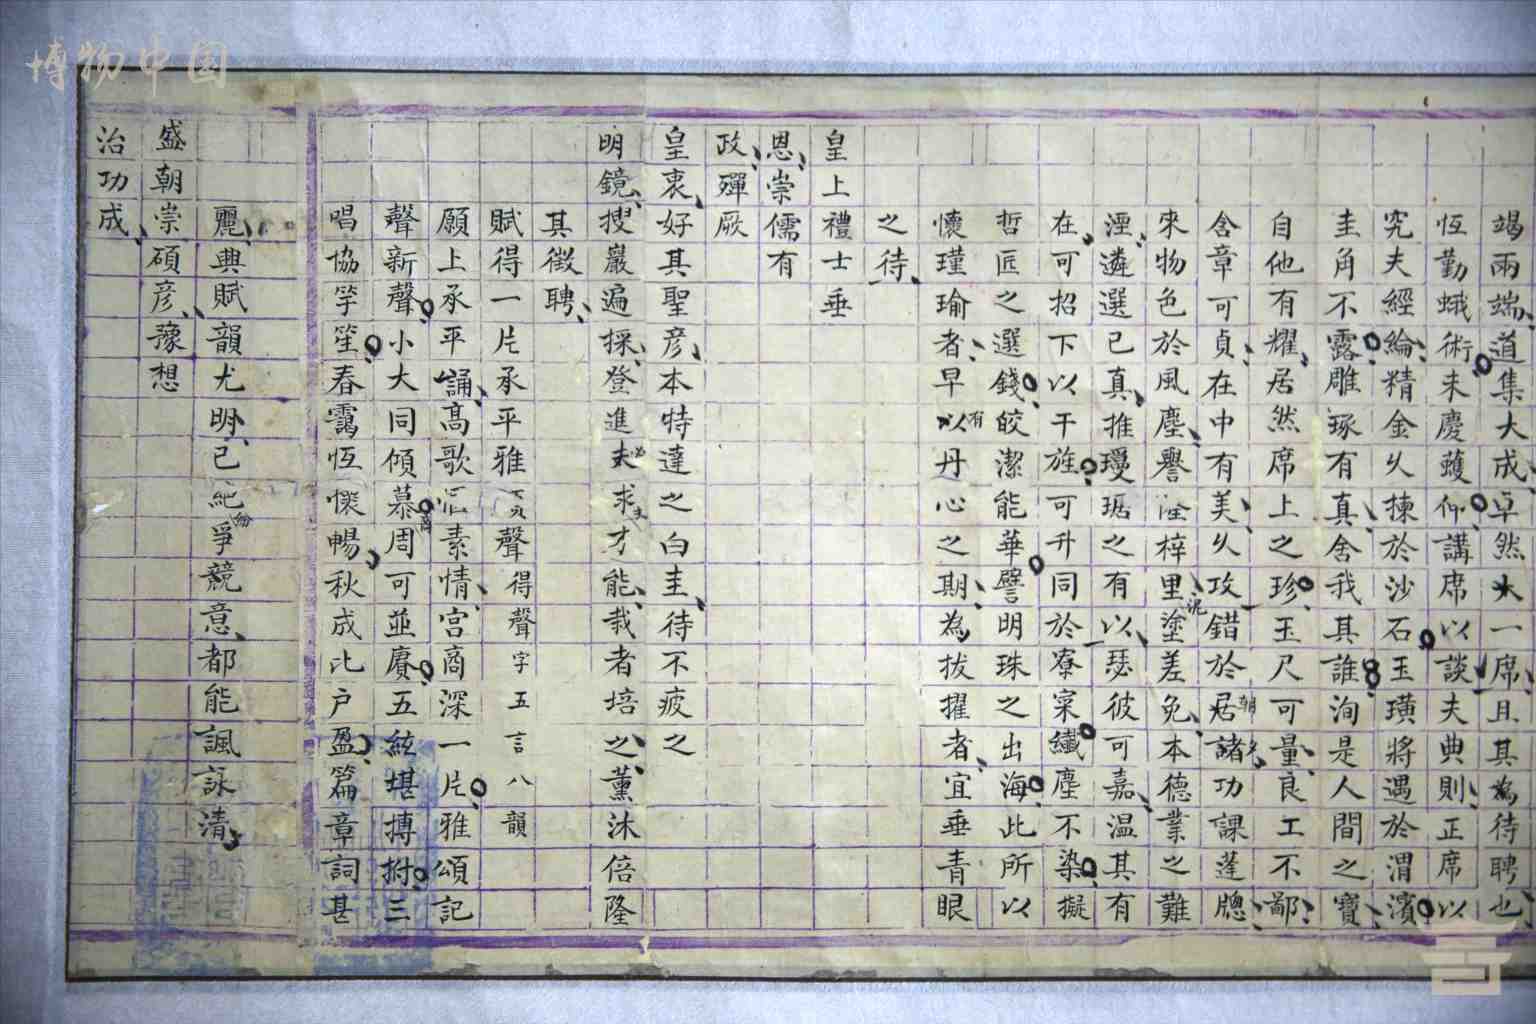 博物中国
竭兩端道集大成卓然大一席且其為待聘也
恆勤蛾術未慶蠖仰講席以談夫典則正席以
究夫經綸精金乆揀於沙石玉璜將遇於渭濱
圭角不露雕琢有真舍我其誰洵是人間之寶
自他有耀居然席上之珍玉尺可量良工不鄙
含章可貞在中有美乆攻錯於居諸功課蓬牕
朝
來物色於風塵譽隆梓里塗差免本德業之難
泥
湮遴選已真推瓊琚之有以瑟彼可嘉温其有
在可招下以干旌可升同於寮寀纖塵不染擬
哲匠之選錢皎潔能華譬明珠之出海此所以
懷瑾瑜者早以丹心之期為拔擢者宜垂青眼
有
之待
皇上禮士垂
恩崇儒有
政殫厥
皇衷好其聖彦本特達之白圭待不疲之
明鏡搜巖遍採登進夫求才能栽者培之薰沐倍隆
其徵聘
賦得一片承平雅頌聲得聲字五言八韻
願上承平誦高歌素情宮商深一片雅頌記
聲新聲小大同傾慕周可並賡五絃堪搏拊三
商
唱協竽笙春靄恆懷暢秋成比户盈篇章詞甚
麗典賦韻尤明已紀爭競意都能諷詠清
盛朝崇碩彦豫想
治功成